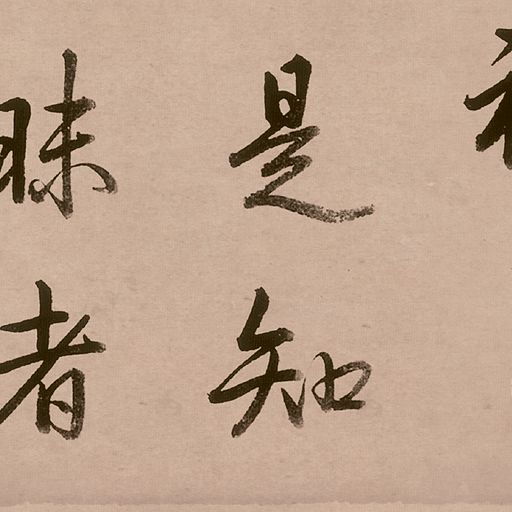 是知
昧者